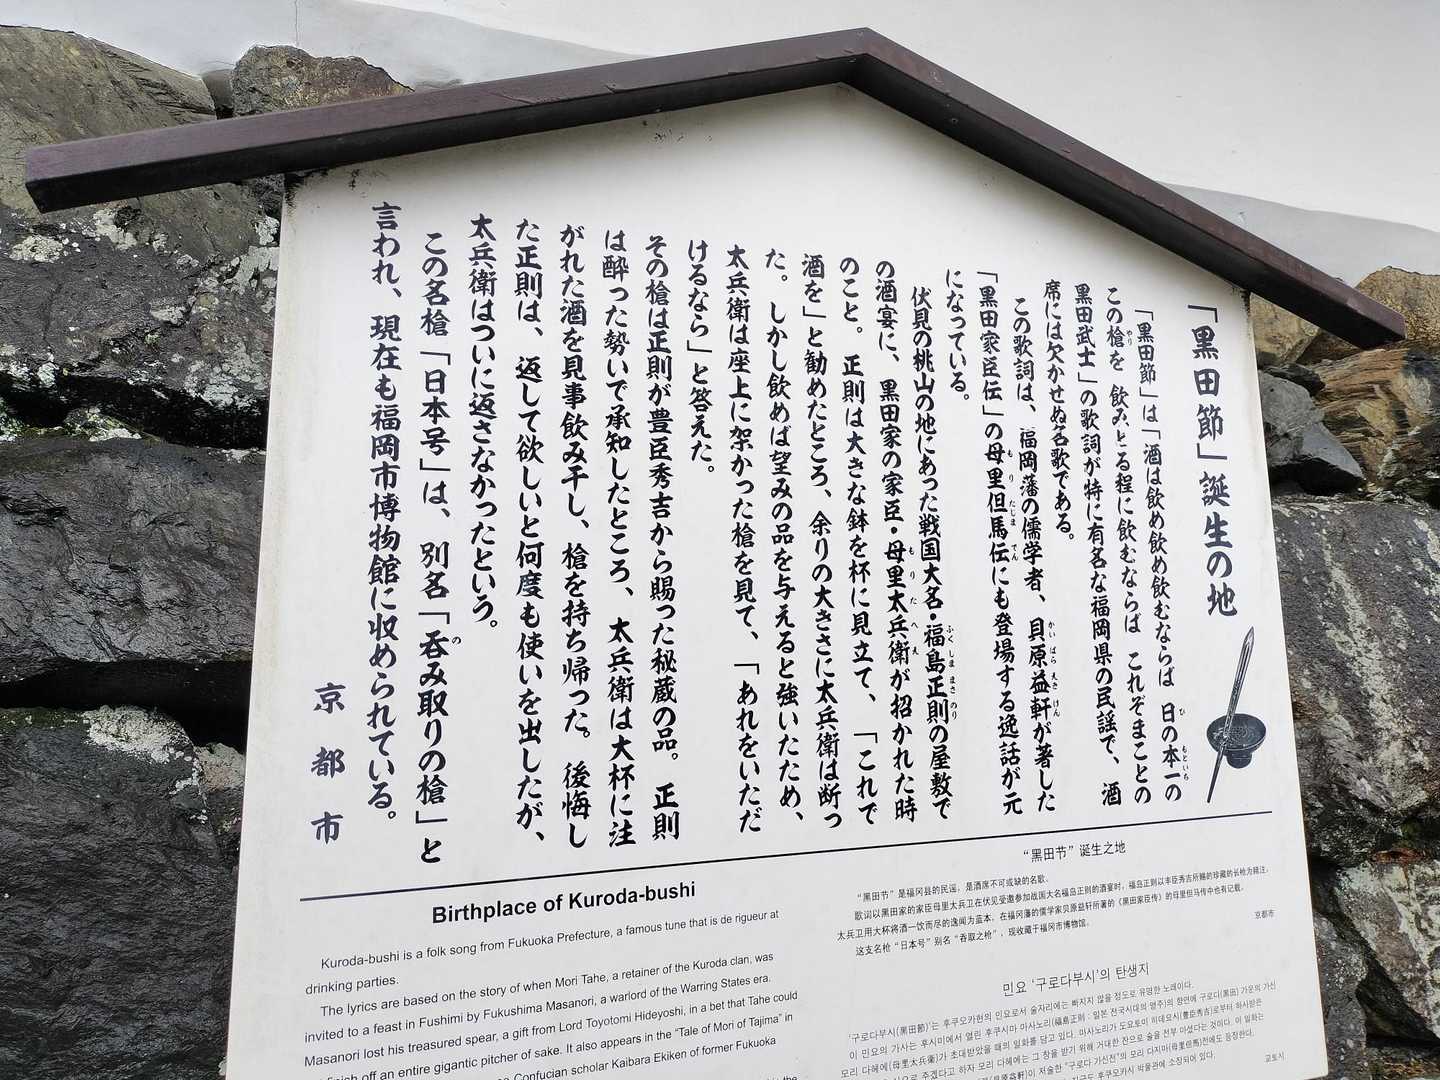 「黒田節」誕生の地
「黒田節」は「酒は飲め飲め飲むならば 日の本一の
この槍を 飲みとる程に飲むならば これぞまことの
黒田武士」の歌詞が特に有名な福岡県の民謡で、酒
席には欠かせぬ名歌である。
この歌詞は、福岡藩の儒学者、貝原益軒が著した
「黒田家臣伝」の母里但馬伝にも登場する逸話が元
になっている。
伏見の桃山の地にあった戦国大名・福島正則の屋敷で
の酒宴に、黒田家の家臣・母里太兵衛が招かれた時
のこと。正則は大きな鉢を杯に見立て、「これで
酒を」と勧めたところ、余りの大きさに太兵衛は断っ
た。しかし飲めば望みの品を与えると強いたため、
太兵衛は座上に架かった槍を見て、「あれをいただ
けるなら」と答えた。
その槍は正則が豊臣秀吉から賜った秘蔵の品。正則
は酔った勢いで承知したところ、太兵衛は大杯に注
がれた酒を見事飲み干し、槍を持ち帰った。後悔し
た正則は、返して欲しいと何度も使いを出したが、
太兵衛はついに返さなかったという。
この名槍「日本号」は、別名「呑み取りの槍」と
言われ、現在も福岡市博物館に収められている。
京都市
Birthplace of Kuroda-bushi
Kuroda-bushi is a folk song from Fukuoka Prefecture, a famous tune that is de rigueur at
drinking parties.
The lyrics are based on the story of when Mori Tahe, a retainer of the Kuroda clan, was
invited to a feast in Fushimi by Fukushima Masanori, a warlord of the Warring States era.
Masanori lost his treasured spear, a gift from Lord Toyotomi Hideyoshi, in a bet that Tahe could
finish off an entire gigantic pitcher of sake. It also appears in the “Tale of Mori of Tajima” in
Confucian scholar Kaibara Ekiken of former Fukuoka
“黑田节”诞生之地
“黑田节”是福冈县的民谣，是酒席不可或缺的名歌。
歌词以黑田家的家臣母里太兵卫在伏见受邀参加战国大名福岛正则的酒宴时，福岛正则以丰臣秀吉所赐的珍藏的长枪为赌注，
太兵卫用大杯将酒一饮而尽的逸闻为蓝本，在福冈藩的儒学家贝原益轩所著的《黑田家臣传》的母里但马传中也有记载。
这支名枪“日本号”别名“吞取之枪”，现收藏于福冈市博物馆。
京都市
민요 ‘구로다부시’의 탄생지
‘구로다부시(黒田節)’는 후쿠오카현의 민요로서 술자리에는 빠지지 않을 정도로 유명한 노래이다.
이 민요의 가사는 후시미에서 열린 후쿠시마 마사노리(福島正則 : 일본 전국시대의 영주)의 향연에 구로다(黒田) 가문의 가신
모리 다헤에(母里太兵衛)가 초대받았을 때의 일화를 담고 있다. 마사노리가 도요토미 히데요시(豊臣秀吉)로부터 하사받은
교토시